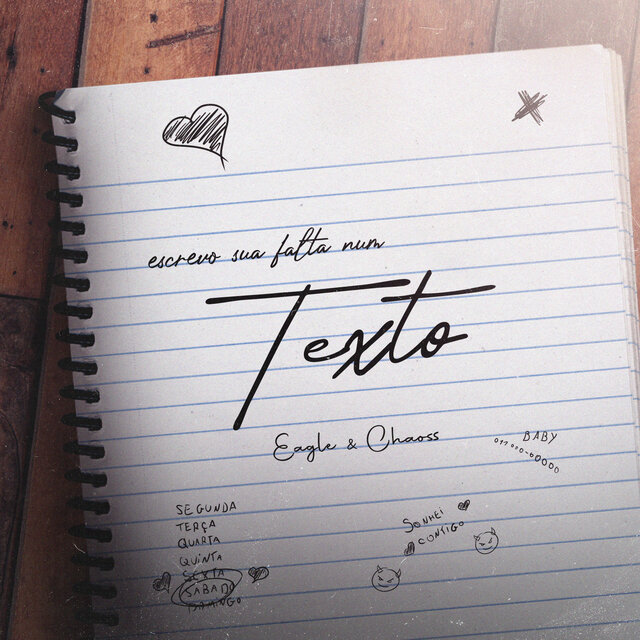 escrevo sua falta num
Texto
Eagle & Chaoss
BABY
SEGUNDA
TERÇA
QUARTA
QUINTA
SEXTA
SABADO
DOMINGO
SONHEI
CONTIGO